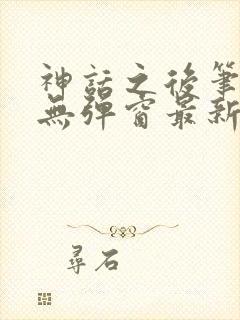 神話之後筆
無彈窗最新
尋石